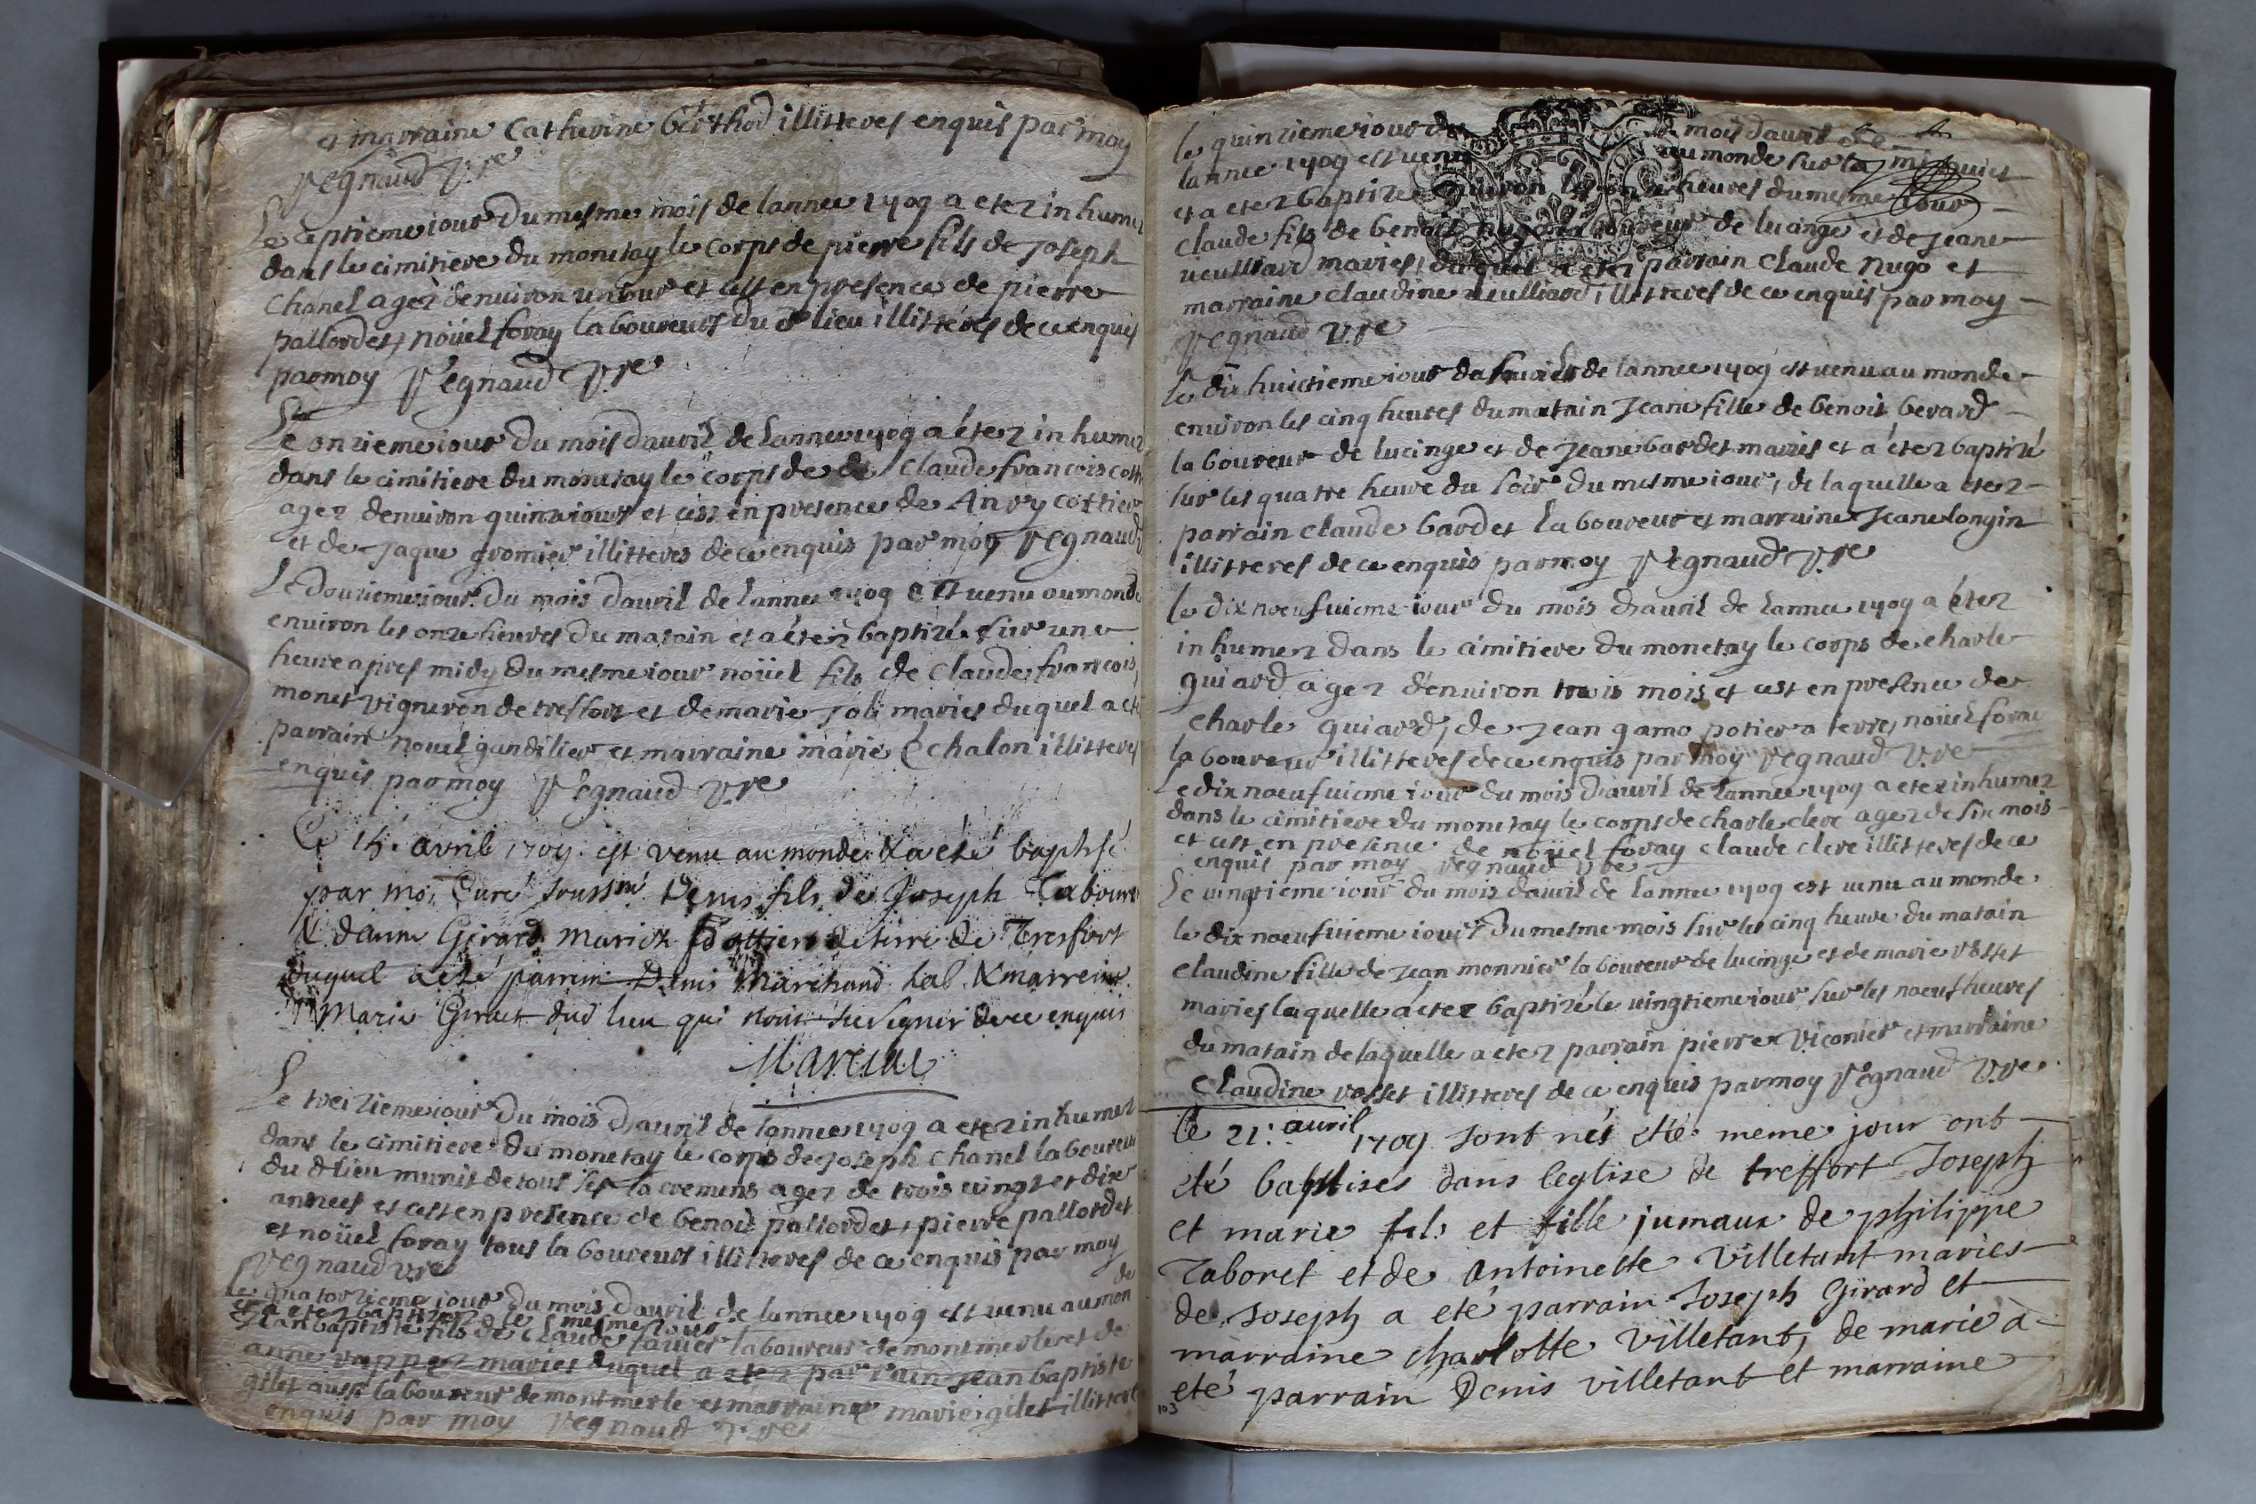 et marraine Catherine berthod illitteres enquis par moy
Regnaud v.re
Le septieme iour du mesme mois de lannee 1709 a etez inhumez
dans le cimitiere du monetay le corps de pierre fils de Joseph
Chanel agez denuiron un iour et cest en presence de pierre
pallordet, noüel foray laboureurs du d lieu illitteres de ce enquis
par moy Regnaud v.re
Le onzieme iour du mois dauril de lannee 1709 a étez inhumez
dans le cimitiere du monetay le corps de claude francois
agez denuiron quinze iours et cest en presence de Anry cottier
et de Jaque gromier illitteres de ce enquis par moy Regnaud
Le douzieme iour du mois dauril de lannee 1709 est uenu au monde
enuiron les onze heures du matain et a étez baptizé sur une
heure apres midy du mesme iour noüel fils de Claude francois
monet vigneron de treffort et de marie Joli maries duquel a etez
parrain nouel gandilier et marraine marie Echalon illitteres
enquis par moy Regnaud v.re
Ce avril 1709 est venu au monde & a eté baptisé
par moi Curé soussné Denis fils de Joseph Taboure
& danne Girard mariez pottiers de terre de Tresfort
duquel a eté parrin Denis Marchand hab. & marreine
Marie Giraut dud lieu qui nont sceu signer de ce enquis
Le treizieme iour du mois dauril de lannee 1709 a etez inhumez
dans le cimitiere du monetay le corps de Joseph Chanel laboureur
du d lieu munit de tous ses sacremens agez de trois uingt et dix
annees et cest en presence de benoit pallordet, pierre pallordet
et noüel foray tous laboureurs illitteres de ce enquis par moy
Regnaud v.re
Le quatorzieme iour du mois dauril de lannee 1709 est uenu au mon de
et a etez baptizez le mesme iour
Jean baptiste fils de Claude fauier laboureur de montmerle et de
anne maries duquel a etez parrain Jean baptiste
gilet aussi laboureur de montmerle et marraine marie gilet illitteres
enquis par moy Regnaud v.re
le quinzieme iour du mois dauril de
lannee 1709 est uenu au monde sur la minuict
et a etez baptize enuiron les onze heures du mesme iour
claude fils de benoit nugo laboureur de lucinge et de Jeane
ueulliard maries, duquel a etez parrain claude nugo et
marraine claudine ueulliard illitteres de ce enquis par moy
Regnaud v.re
Le dix huictieme iour dauril de lannee 1709 est uenu au monde
enuiron les cinq heures du matain Jeane fille de benoit berard
laboureur de lucinge et de Jeane bardet maries et a étez baptizé
sur les quatre heure du soir du mesme iour, de laquelle a etez
parrain claude bardet laboureur et marraine Jeane longin
illitteres de ce enquis par moy Regnaud v.re
le dix noeufuieme iour du mois dauril de lannee 1709 a étez
inhumez dans le cimitiere du monetay le corps de charle
guiard agez denuiron trois mois et cest en presence de
charle guiard, de Jean gamo potier a terre, noüel foray
laboureur illitteres de ce enquis par moy Regnaud v.re
Le dix noeufuieme iour du mois dauril de lannee 1709 a etez inhumez
dans le cimitiere du monetay le corps de charle clere agez de six mois
et cest en presence de noüel foray claude clere illitteres de ce
enquis par moy Regnaud v.re
Le uingtieme iour du mois dauril de lannee 1709 est uenu au monde
le dix noeufuieme iour du mesme mois sur les cinq heure du matain
Claudine fille de Jean monnier laboureur de lucinge et de marie rosset
maries laquelle a étez baptizé le uingtieme iour sur les noeuf heures
du matain de laquelle a etez parrain pierre viconier et marraine
Claudine rosset illitteres de ce enquis par moy Regnaud v.re
le 21. auril 1709 sont nés et le meme jour ont
eté baptises dans leglise de treffort Joseph
et marie fils et fille jumaux de philippe
Taboret et de Antoinette Villetant maries
de Joseph a eté parrain Joseph Girard et
marraine charlotte Villetant, de marie a
eté parrain Denis villetant et marraine
103